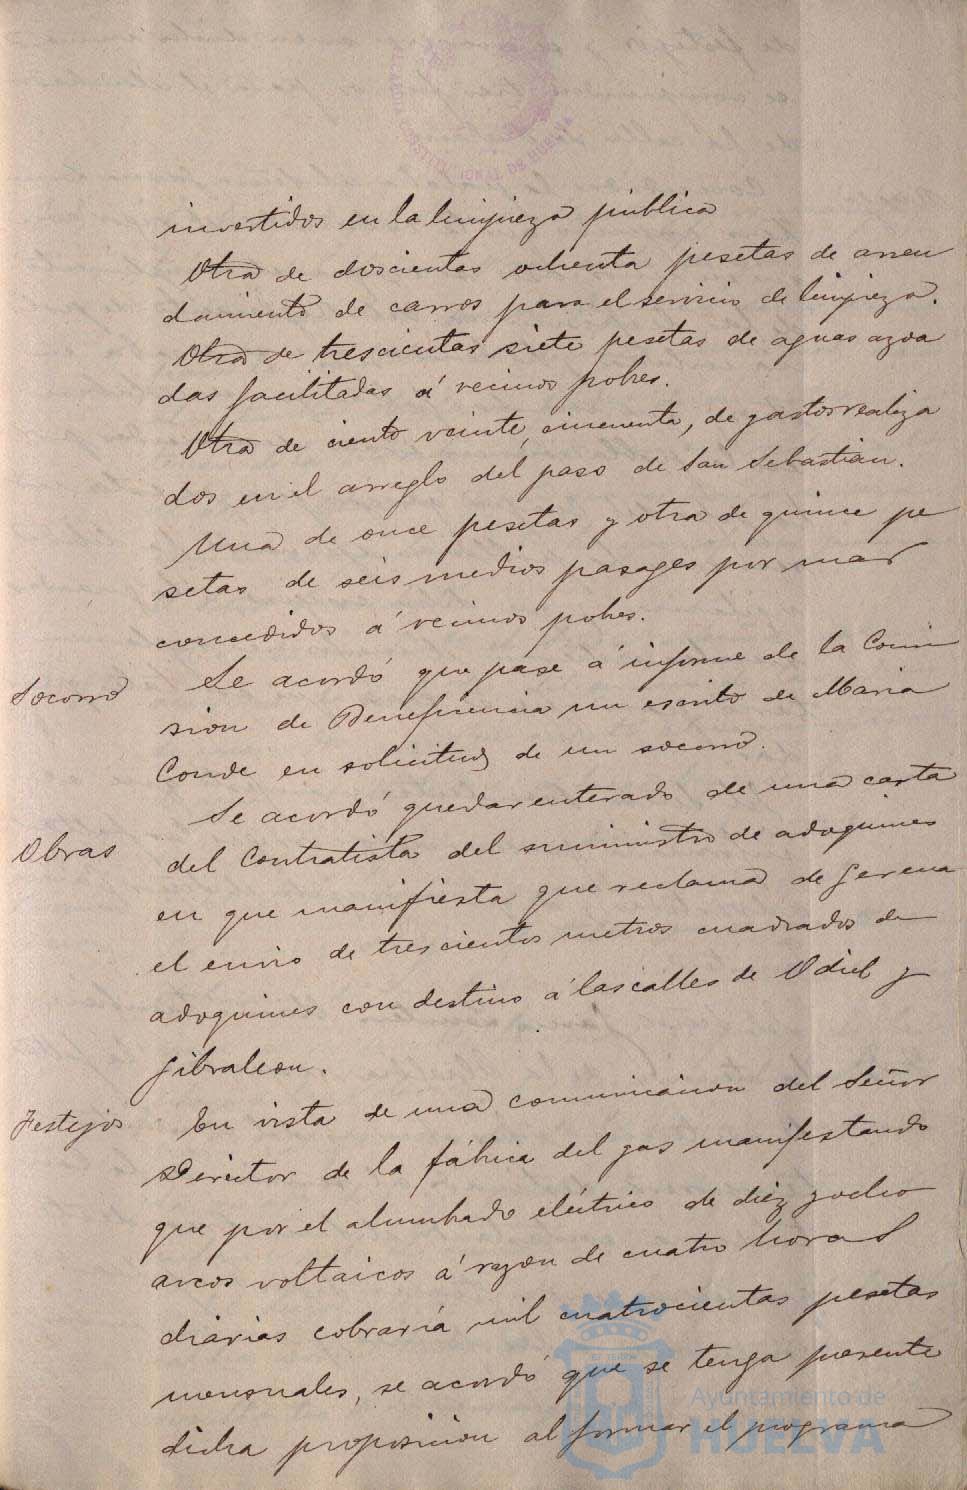 invertidos en la limpieza pública
Otra de doscientas ochenta pesetas de arren
damiento de carros para el servicio de limpieza.
Otra de trescientas siete pesetas de aguas azoa
das facilitadas á vecinos pobres.
Otra de ciento veinte, cincuenta, de gastos realiza
dos en el arreglo del paso de San Sebastian.
Una de once pesetas y otra de quince pe
setas de seis medios pasages por mar
concedidos á vecinos pobres.
Socorro
Se acordó que pase á informe de la Comi
sion de Beneficencia un escrito de Maria
Conde en solicitud de un socorro.
Obras
Se acordó quedar enterado de una carta
del Contratista del suministro de adoquines
en que manifiesta que reclama de Gerena
el envio de trescientos metros cuadrados de
adoquines con destino á las calles de Odiel y
Gibraleon.
Festejos
En vista de una comunicacion del Señor
Director de la fábrica del gas manifestando
que por el alumbrado eléctrico de diez y ocho
arcos voltaicos á razon de cuatro horas
diarias cobraría mil cuatrocientas pesetas
mensuales, se acordó que se tenga presente
dicha proposicion al formar el programa
Ayuntamiento de
HUELVA